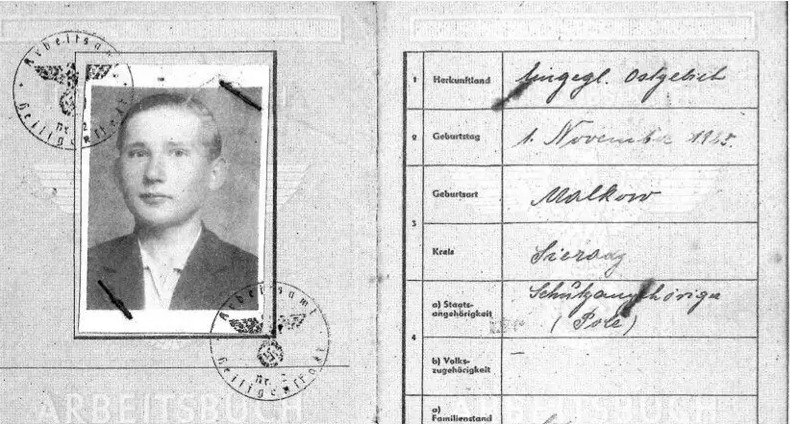 Arbeitsamt
Heiligenstadt
Arbeitsamt
Heiligenstadt
ARBEITSBUCH
1 Herkunftland Eingegl. Ostgebiet
2 Geburtstag 1. November
3 Geburtsort Malkow
Kreis Sieradz
4 a) Staats-
angehörigkeit Schutzangehöriger
(Pole)
b) Volks-
zugehörigkeit –
a)
Familienstand
ARBEITSBUCH